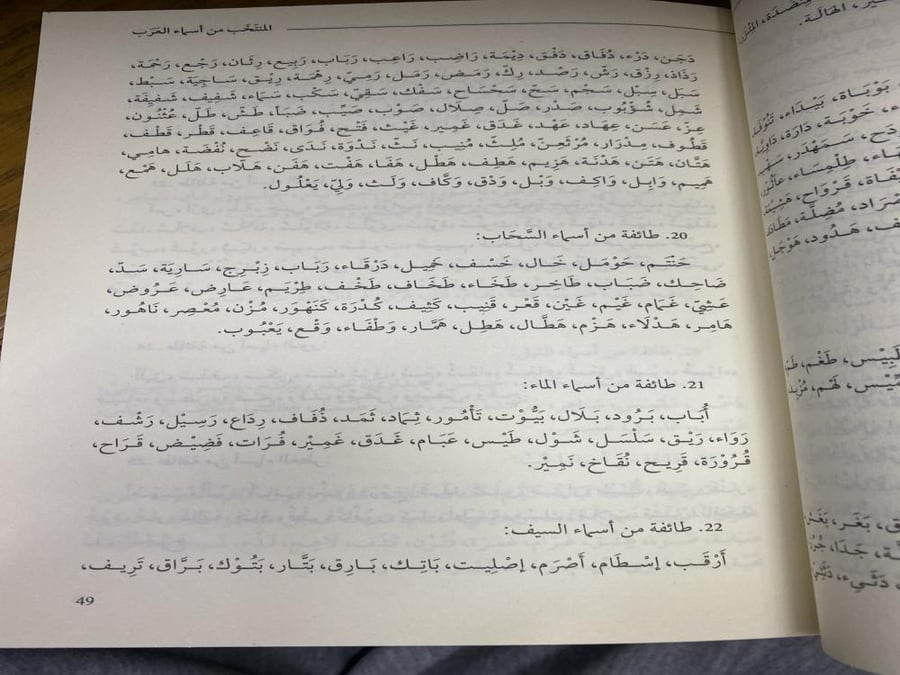 المنتَخَب من أسماء العَرَب
دَجَن، دَرْء، دُفَاق، دَفْق، دِيْمَة، رَاضِب، رَاعِب، رَبَاب، رَبِيع، رِثَان، رَجْع، رَحْمَة،
رَذَاذ، رِزْق، رَشّ، رَصْد، رِكّ، رَمَض، رَمَل، رَمِيّ، رِهْمَة، رِيِّق، سَاجِيَة، سَبْط،
سَبَل، سِبْل، سَجْم، سَحّ، سَحْسَاح، سَفْك، سَقِيّ، سَكْب، سَمَاء، شَفِيف، شَفِيفَة،
شَمِل، شُؤْبُوب، صَدْر، صَلّ، صِلَال، صَوْب، صَيِّب، ضَبَأ، طَشّ، طَلّ، عُثْنُون،
عِزّ، عَسَن، عِهَاد، عَهْد، غَدَق، غَمِير، غَيْث، فَتْح، فُوَاق، قَاعِف، قَطْر، قَطْف،
قَطُوف، مِدْرَار، مُرْثَعِنّ، مُلِثّ، مُنِيب، نَثّ، نَدْوَة، نَدَى، نَضْح، نُفْضَة، هامِي،
هَتَّان، هَتَن، هَدْنَة، هَزِيم، هَطِف، هَطْل، هَفَا، هَفْت، هَفَن، هَلَاب، هَلَل، هَمْع،
هَمِيم، وَابِل، وَاكِف، وَبْل، وَدْق، وَكَّاف، وَلْث، وَلِيّ، يَعْلُول.
20. طائفة من أسماء السَّحَاب:
حَنْتَم، حَوْمَل، خَال، خَسْف، خَمِيل، دَرْقَاء، رَبَاب، زِبْرِج، سَارِيَة، سَدّ،
ضَاحِك، ضَبَاب، طَاخِر، طَخَاء، طَخَاف، طَخْف، طِرْيَم، عَارِض، عَرُوض،
عَشِيّ، غَمَام، غَيْم، غَيْن، قَعْر، قَنِيب، كَثِيف، كُدْرَة، كَنَهْوَر، مُزْن، مُعْصِر، نَاهُور،
هَامِر، هَدْلَاء، هَزْم، هَطَّال، هَطِل، هَمَّار، وَطْفَاء، وَقْع، يَعْبُوب.
21. طائفة من أسماء الماء:
أُبَاب، بَرُود، بَلَال، بَيُّوْت، تَأْمُور، ثِمَاد، ثَمَد، ذُفَاف، رِدَاع، رَسِيْل، رَشْف،
رَوَاء، رَيْق، سَلْسَل، شَوْل، طَيْس، عَبَام، غَدَق، غَمِيْر، فُرَات، فَضِيْض، قَرَاح،
قُرُوْرَة، قَرِيح، نُقَاخ، نَمِيْر.
22. طائفة من أسماء السيف:
أَرْقَب، إسْطَام، أَصْرَم، إصْلِيت، بَاتِك، بَارِق، بَتَّار، بَتُوْك، بَرَّاق، تَرِيف،
49